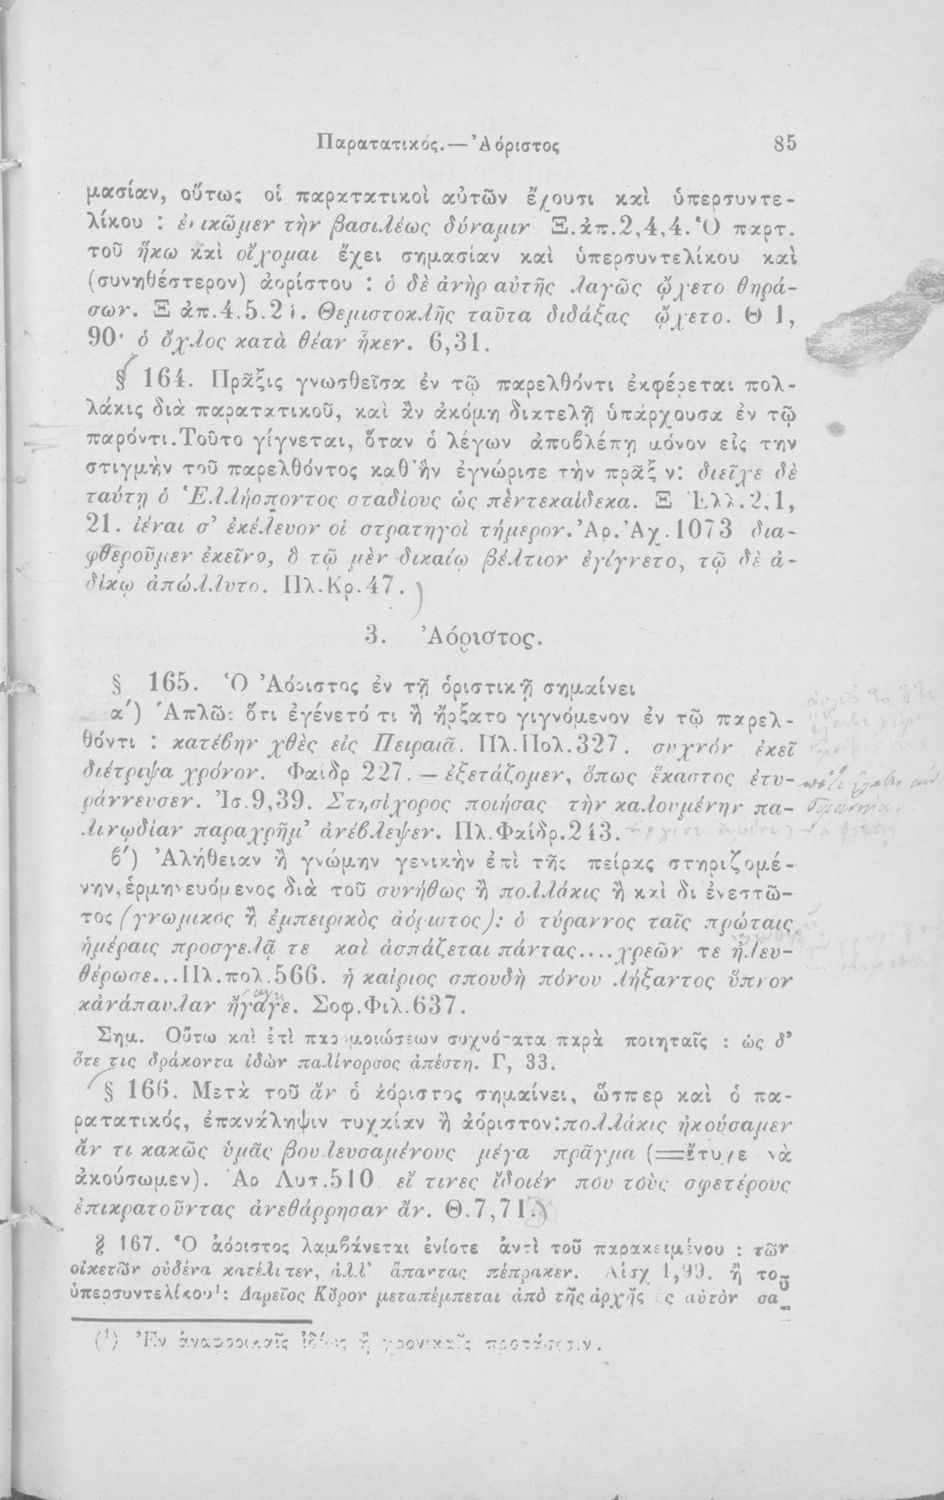 Παρατατικός.—Ἀόριστος 85
μασίαν, οὕτως οἱ παρατατικοὶ αὐτῶν ἔχουσι καὶ ὑπερσυντε-
λίκου : ἐνικῶμεν τὴν βασιλέως δύναμιν Ξ.ἀπ.2,4,4. Ὁ παρτ.
τοῦ ἥκω καὶ οἴχομαι ἔχει σημασίαν καὶ ὑπερσυντελίκου καὶ
(συνηθέστερον) ἀορίστου : ὁ δὲ ἀνὴρ αὐτῆς λαγῶς ᾤχετο θηρά-
σων. Ξ ἀπ.4.5.24. Θεμιστοκλῆς ταῦτα διδάξας ᾤχετο. Θ 1,
90· ὁ ὄχλος κατὰ θέαν ἧκεν. 6,31.
§ 164. Πρᾶξις γνωσθεῖσα ἐν τῷ παρελθόντι ἐκφέρεται πολ-
λάκις διὰ παρατατικοῦ, καὶ ἂν ἀκόμη διατελῇ ὑπάρχουσα ἐν τῷ
παρόντι.Τοῦτο γίγνεται, ὅταν ὁ λέγων ἀποβλέπῃ μόνον εἰς την
στιγμὴν τοῦ παρελθόντος καθ'ἣν ἐγνώρισε τὴν πρᾶξ ν: διεῖχε δὲ
ταύτῃ ὁ Ἑλλήσποντος σταδίους ὡς πεντεκαίδεκα. Ξ Ἑλλ.2,1,
21. ἰέναι σ' ἐκέλευον οἱ στρατηγοὶ τήμερον. Ἀρ. Ἀχ.1073 δια-
φθεροῦμεν ἐκεῖνο, ὃ τῷ μὲν δικαίῳ βέλτιον ἐγίγνετο, τῷ δὲ ἀ-
δίκῳ ἀπώλλυτο. Πλ.Κρ.47.
3. Ἀόριστος.
§ 165. Ὁ Ἀόριστος ἐν τῇ ὁριστικῇ σημαίνει
α′) Ἁπλῶς ὅτι ἐγένετό τι ἢ ἤρξατο γιγνόμενον ἐν τῷ παρελ-
θόντι : κατέβην χθὲς εἰς Πειραιᾶ. Πλ.Πολ.327. συχνόν ἐκεῖ
διέτριψα χρόνον. Φαίδρ 227. — ἐξετάζομεν, ὅπως ἕκαστος ἐτυ-
ράννευσεν. Ἰσ.9,39. Στησίχορος ποιήσας τὴν καλουμένην πα-
λινῳδίαν παραχρῆμ' ἀνέβλεψεν. Πλ.Φαίδρ.243.
β′) Ἀλήθειαν ἢ γνώμην γενικὴν ἐπὶ τῆς πείρας στηριζομέ-
νην,ἑρμηνευόμενος διὰ τοῦ συνήθως ἢ πολλάκις ἢ καὶ δι ἐνεστῶ-
τος (γνωμικὸς ἢ ἐμπειρικὸς ἀόριστος): ὁ τύραννος ταῖς πρώταις
ἡμέραις προσγελᾷ τε καὶ ἀσπάζεται πάντας....χρεῶν τε ἠλευ-
θέρωσε...Πλ.πολ.566. ἡ καίριος σπουδὴ πόνου λήξαντος ὕπνον
κἀνάπαυλαν ἤγαγε. Σοφ.Φιλ.637.
Σημ. Οὕτω καὶ ἐπὶ παρομοιώσεων συχνότατα παρὰ ποιηταῖς : ὡς δ'
ὅτε τις δράκοντα ἰδὼν παλίνορσος ἀπέστη. Γ, 33.
§ 166. Μετὰ τοῦ ἄν ὁ ἀόριστος σημαίνει, ὥσπερ καὶ ὁ πα-
ρατατικός, ἐπανάληψιν τυχαίαν ἢ ἀόριστον:πολλάκις ἠκούσαμεν
ἄν τι κακῶς ὑμᾶς βουλευσαμένους μέγα πρᾶγμα (=ἔτυχε νὰ
ἀκούσωμεν). Ἀρ Λυσ.510 εἴ τινες ἴδοιέν που τοὺς σφετέρους
ἐπικρατοῦντας ἀνεθάρρησαν ἄν. Θ.7,71.
§ 167. Ὁ ἀόριστος λαμβάνεται ἐνίοτε ἀντὶ τοῦ παρακειμένου : τῶν
οἰκετῶν οὐδένα κατέλιπεν, ἀλλ' ἅπαντας πέπρακεν. Αἰσχ 1,99. ἢ τοῦ
ὑπερσυντελίκου¹: Δαρεῖος Κῦρον μεταπέμπεται ἀπὸ τῆς ἀρχῆς ς αὐτὸν σα_
(¹) Ἐν ἀναφορικαῖς ἰδίως ἢ χρονικαῖς προτάσεσιν.